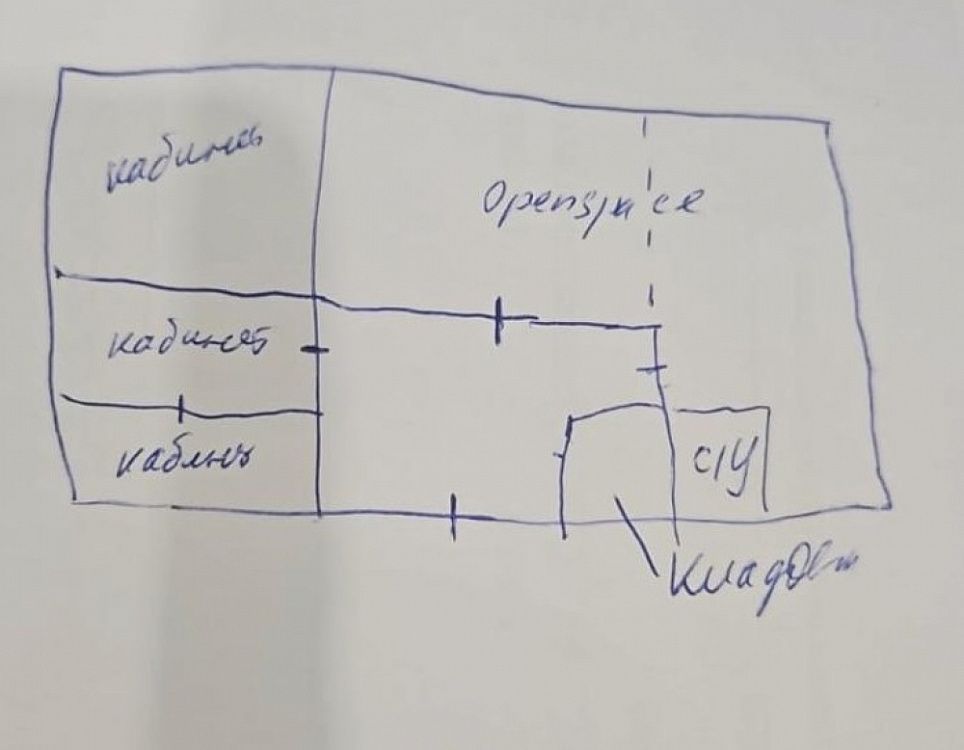 кабинет
Openspace
кабинет
кабинет
с/у
Кладов